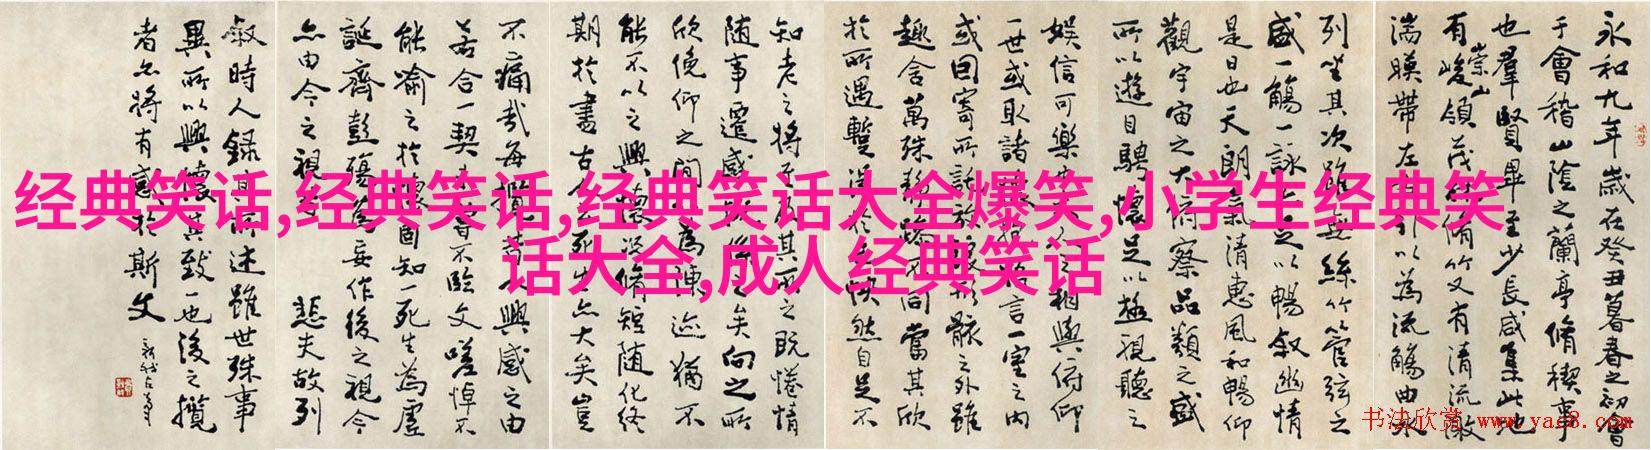 经典笑话,经典笑话,经典笑话大全爆笑,小学生经典笑
话大全,成人经典笑话
永和九年歲在癸丑暮春之初會
于會稽山陰之蘭亭脩稧事
也羣賢畢至少長咸集此地
有崇山峻領茂林脩竹又有清流激
湍暎帶左右引以為流觴曲水
列坐其次雖無絲竹管弦之
盛一觴一詠亦足以暢敘幽情
是日也天朗氣清惠風和暢仰
觀宇宙之大俯察品類之盛
所以遊目騁懷足以極視聽之
娛信可樂也夫人之相與俯仰
一世或取諸懷抱悟言一室之內
或因寄所託放浪形骸之外雖
趣舍萬殊靜躁不同當其欣
於所遇蹔得於己快然自足不
知老之將至及其所之既惓情
隨事遷感慨係之矣向之所
欣俛仰之間以為陳迹猶不
能不以之興懷況脩短隨化終
期於盡古人云死生亦大矣豈
不痛哉每攬昔人興感之由
若合一契未嘗不臨文嗟悼不
能喻之於懷固知一死生為虛
誕齊彭殤為妄作後之視今
亦由今之視昔悲夫故列
敘時人錄其所述雖世殊事
異所以興懷其致一也後之攬
者亦將有感於斯文
书法欣赏 www.yac8.com